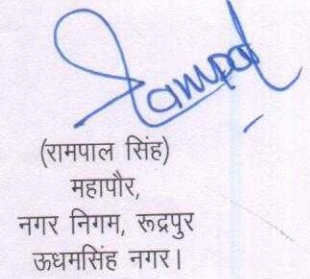 Rampal
(रामपाल सिंह)
महापौर,
नगर निगम, रूद्रपुर
ऊधमसिंह नगर।